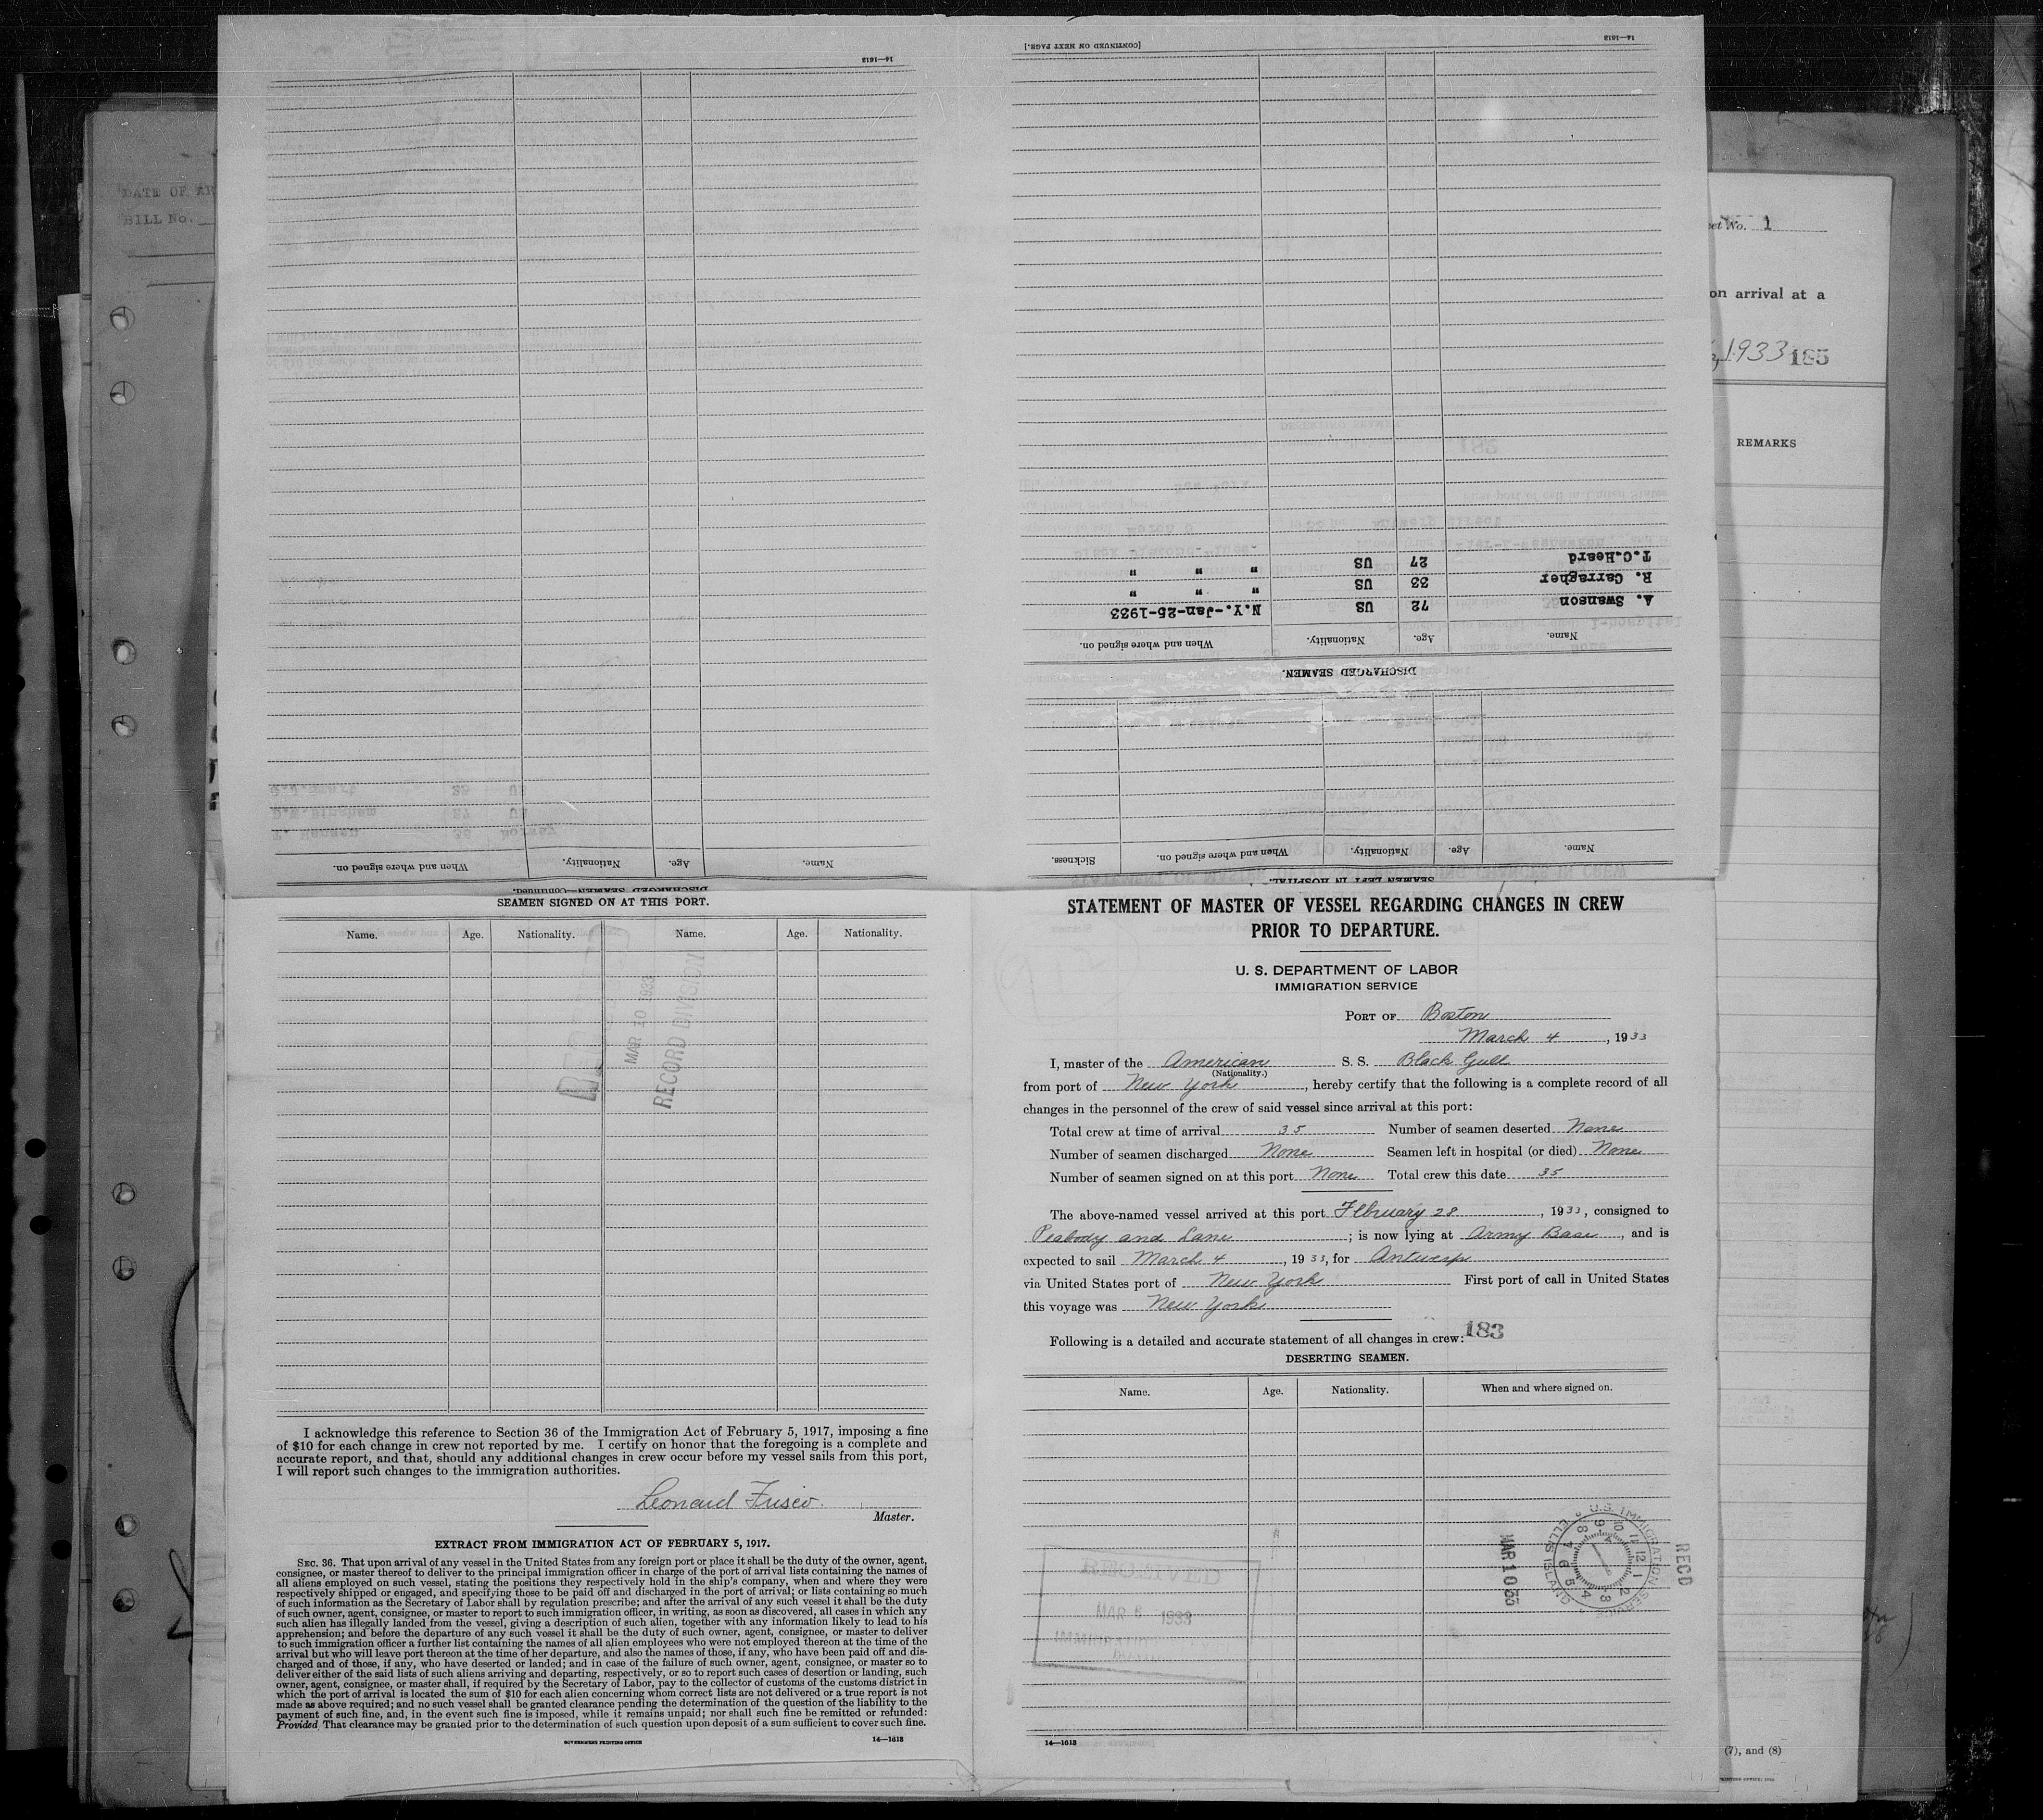 14—1613
[CONTINUED ON NEXT PAGE.]
14—1613
T.C.Heard 27 US " " "
R. Carragher 33 US " " "
A. Swanson 72 US N.Y.-Jan-25-1933
Name. Age. Nationality. When and where signed on.
DISCHARGED SEAMEN.
Name. Age. Nationality. When and where signed on. Sickness.
SEAMEN LEFT IN HOSPITAL.
Name. Age. Nationality. When and where signed on.
DISCHARGED SEAMEN—Continued.
DATE OF AR
BILL No.
No. 1
on arrival at a
1933 185
REMARKS
(7), and (8)
SEAMEN SIGNED ON AT THIS PORT.
Name. Age. Nationality. Name. Age. Nationality.
MAR 10 1933
RECORD DIVISION
I acknowledge this reference to Section 36 of the Immigration Act of February 5, 1917, imposing a fine
of $10 for each change in crew not reported by me. I certify on honor that the foregoing is a complete and
accurate report, and that, should any additional changes in crew occur before my vessel sails from this port,
I will report such changes to the immigration authorities.
Leonard
Master.
EXTRACT FROM IMMIGRATION ACT OF FEBRUARY 5, 1917.
SEC. 36. That upon arrival of any vessel in the United States from any foreign port or place it shall be the duty of the owner, agent,
consignee, or master thereof to deliver to the principal immigration officer in charge of the port of arrival lists containing the names of
all aliens employed on such vessel, stating the positions they respectively hold in the ship's company, when and where they were
respectively shipped or engaged, and specifying those to be paid off and discharged in the port of arrival; or lists containing so much
of such information as the Secretary of Labor shall by regulation prescribe; and after the arrival of any such vessel it shall be the duty
of such owner, agent, consignee, or master to report to such immigration officer, in writing, as soon as discovered, all cases in which any
such alien has illegally landed from the vessel, giving a description of such alien, together with any information likely to lead to his
apprehension; and before the departure of any such vessel it shall be the duty of such owner, agent, consignee, or master to deliver
to such immigration officer a further list containing the names of all alien employees who were not employed thereon at the time of the
arrival but who will leave port thereon at the time of her departure, and also the names of those, if any, who have been paid off and dis-
charged and of those, if any, who have deserted or landed; and in case of the failure of such owner, agent, consignee, or master so to
deliver either of the said lists of such aliens arriving and departing, respectively, or so to report such cases of desertion or landing, such
owner, agent, consignee, or master shall, if required by the Secretary of Labor, pay to the collector of customs of the customs district in
which the port of arrival is located the sum of $10 for each alien concerning whom correct lists are not delivered or a true report is not
made as above required; and no such vessel shall be granted clearance pending the determination of the question of the liability to the
payment of such fine, and, in the event such fine is imposed, while it remains unpaid; nor shall such fine be remitted or refunded:
Provided That clearance may be granted prior to the determination of such question upon deposit of a sum sufficient to cover such fine.
GOVERNMENT PRINTING OFFICE 14—1613
STATEMENT OF MASTER OF VESSEL REGARDING CHANGES IN CREW
PRIOR TO DEPARTURE.
U. S. DEPARTMENT OF LABOR
IMMIGRATION SERVICE
PORT OF Boston
March 4, 1933
I, master of the American S. S. Black Gull
(Nationality.)
from port of New York, hereby certify that the following is a complete record of all
changes in the personnel of the crew of said vessel since arrival at this port:
Total crew at time of arrival 35 Number of seamen deserted None
Number of seamen discharged None Seamen left in hospital (or died) None
Number of seamen signed on at this port None Total crew this date 35
The above-named vessel arrived at this port February 28, 1933, consigned to
Peabody and Lane; is now lying at Army Base, and is
expected to sail March 4, 1933, for Antwerp
via United States port of New York First port of call in United States
this voyage was New York
Following is a detailed and accurate statement of all changes in crew: 183
DESERTING SEAMEN.
Name. Age. Nationality. When and where signed on.
RECEIVED
MAR 1933
MAR 10 33
U.S. IMMIGRATION SERVICE
ELLIS ISLAND
RECD
14—1613